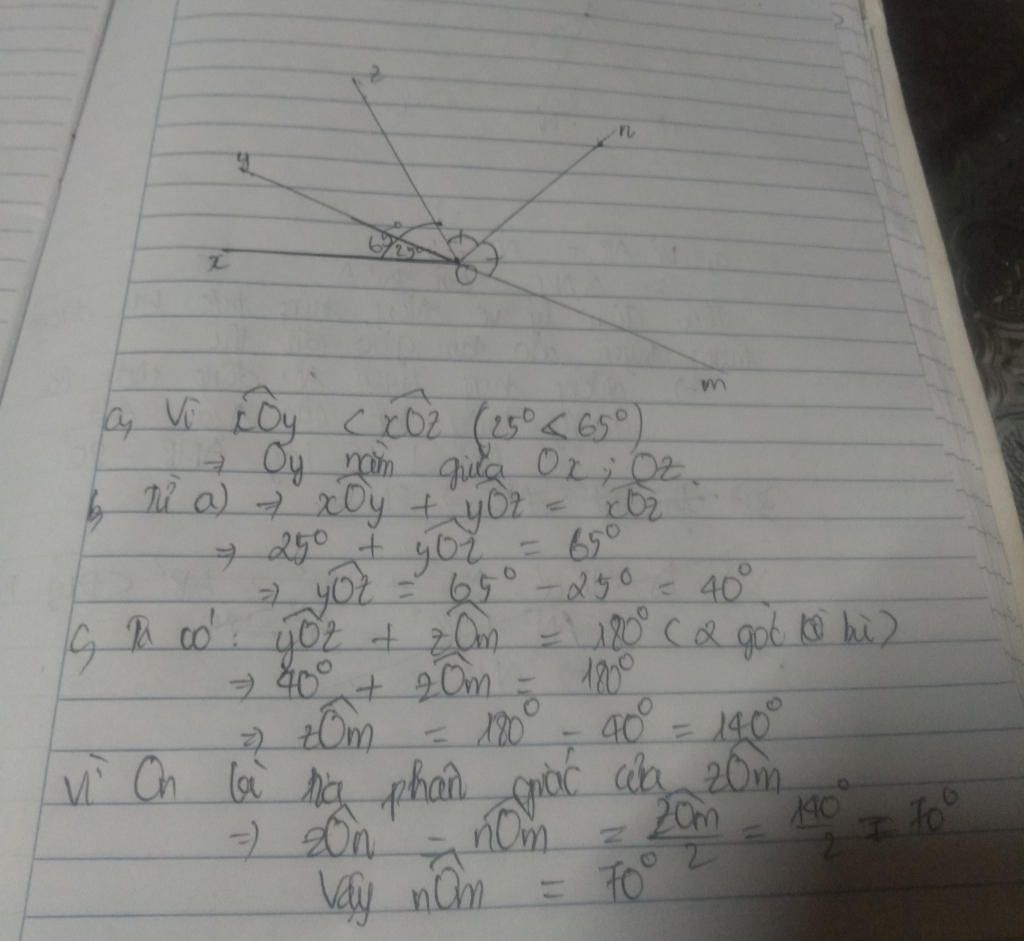 z
n
y
65°
25°
x
O
m
a, Vì xOy < xOz (25° < 65°)
⇒ Oy nằm giữa Ox ; Oz.
b, Từ a) ⇒ xOy + yOz = xOz
⇒ 25° + yOz = 65°
⇒ yOz = 65° - 25° = 40°
c, Ta có : yOz + zOm = 180° (2 góc kề bù)
⇒ 40° + zOm = 180°
⇒ zOm = 180° - 40° = 140°
Vì On là tia phân giác của zOm
⇒ zOn = nOm = zOm/2 = 140°/2 = 70°
Vậy nOm = 70°